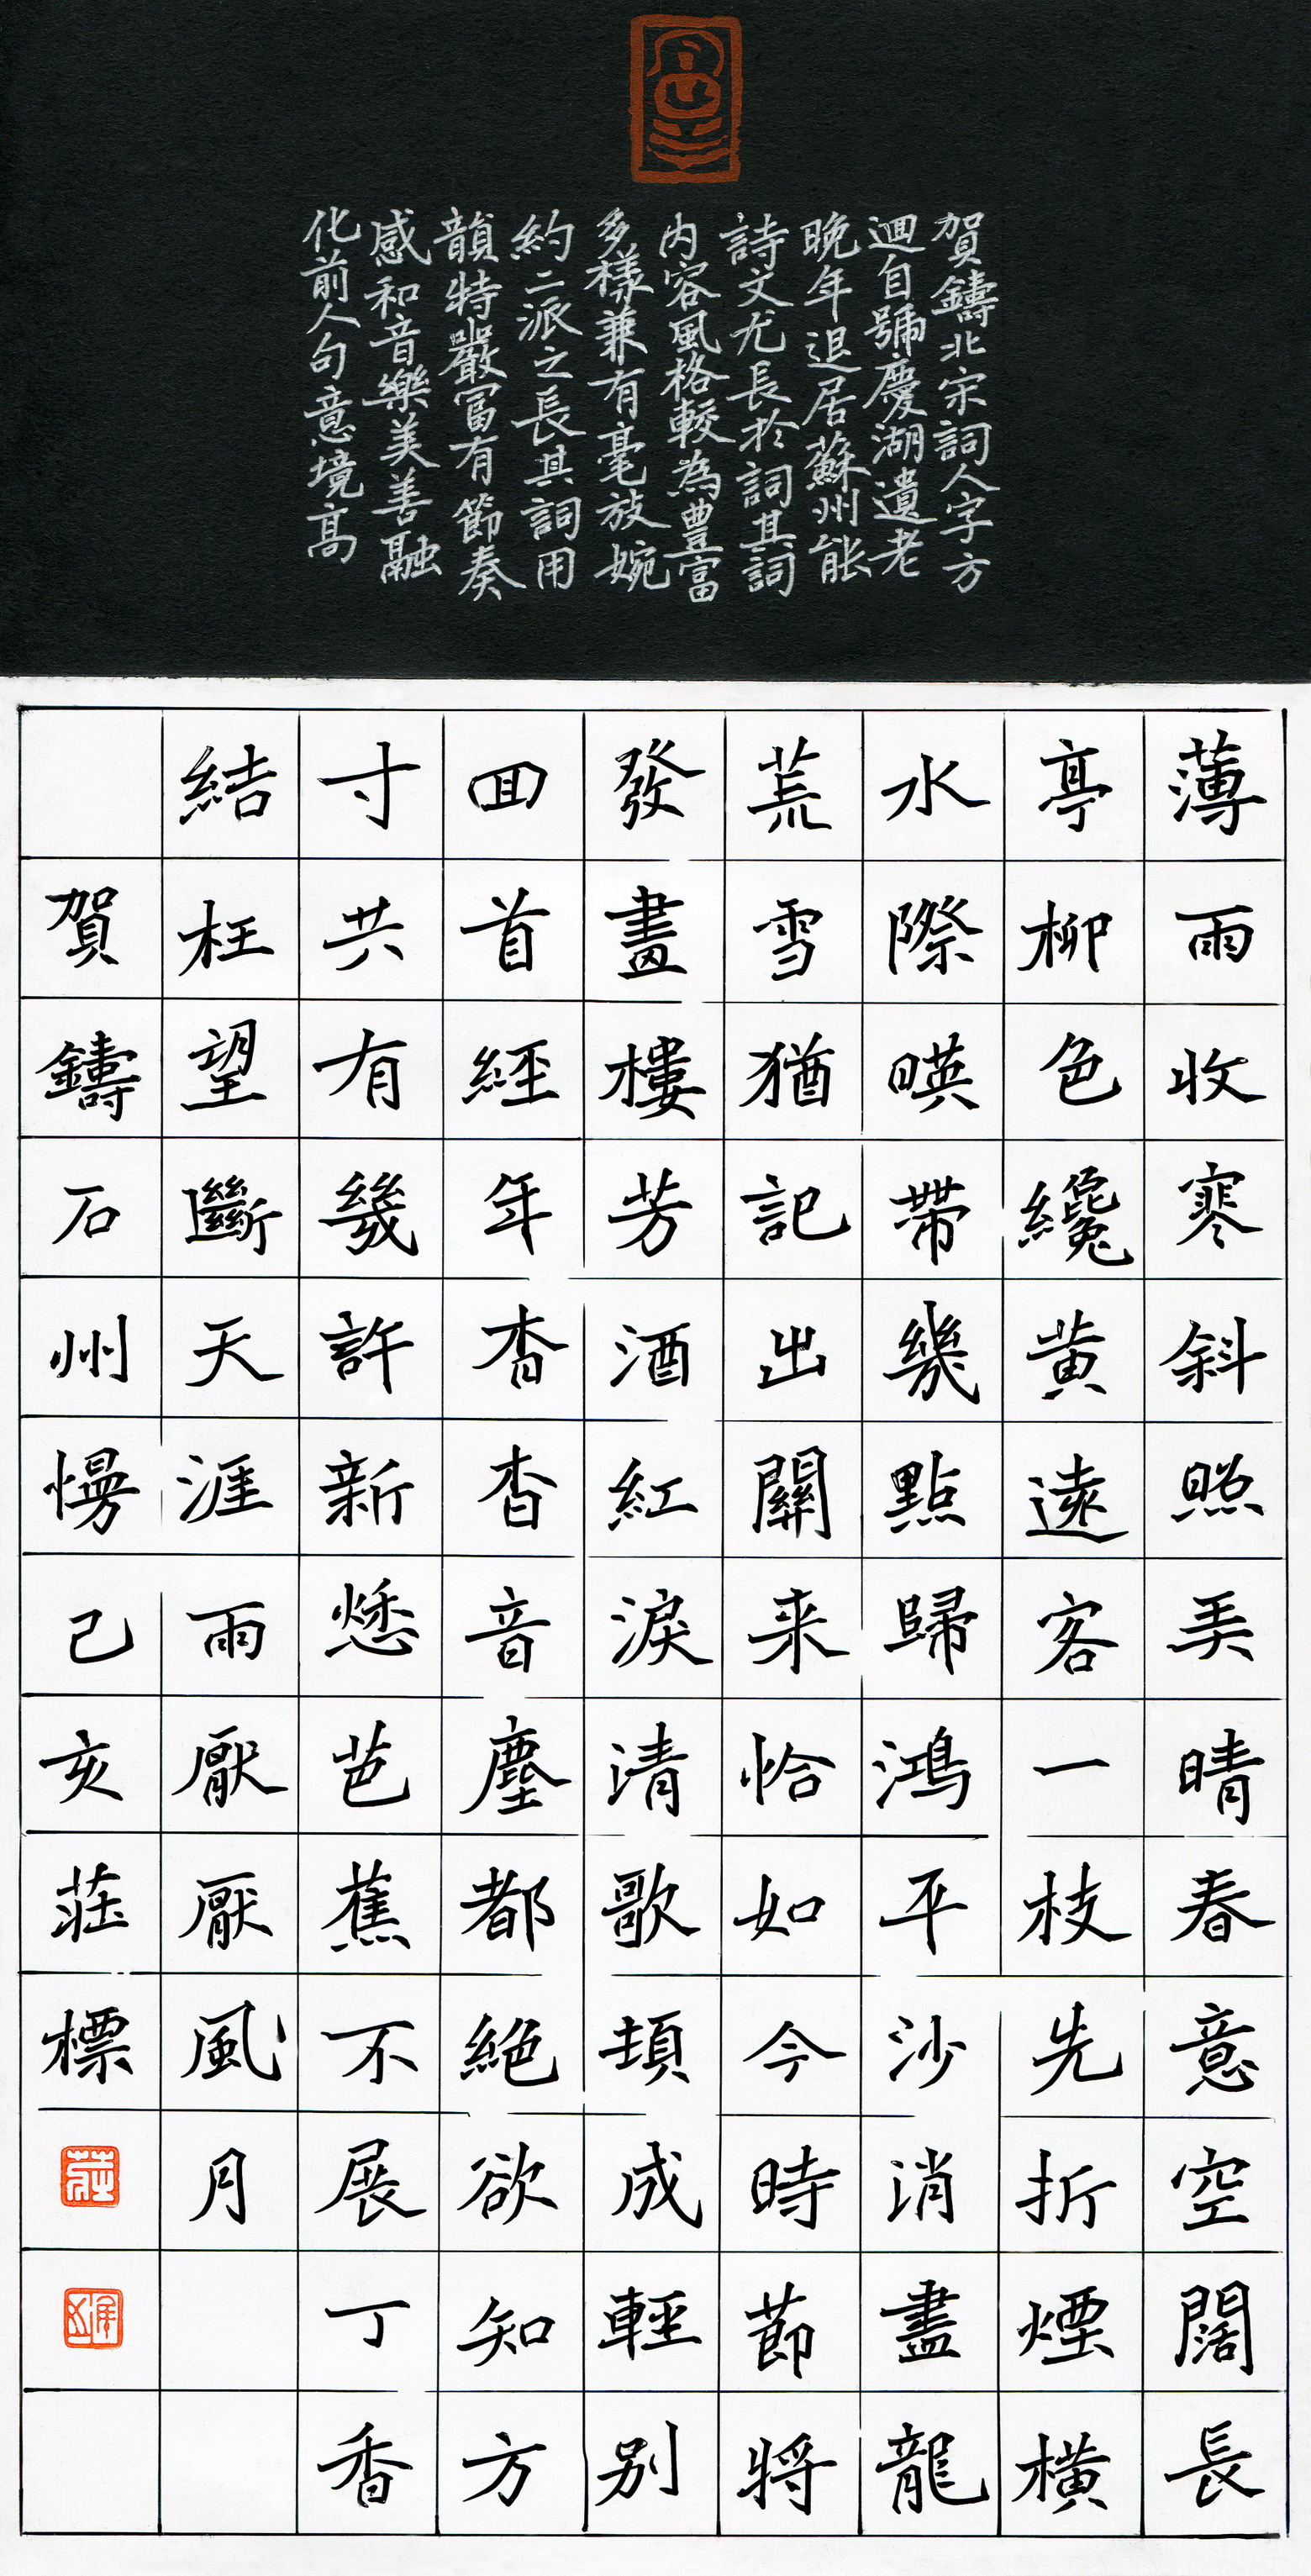 賀鑄北宋詞人字方
迴自號慶湖遺老
晚年退居蘇州能
詩文尤長於詞其詞
内容風格較為豊富
多樣兼有毫放婉
約二派之長其詞用
韻特嚴富有節奏
感和音樂美善融
化前人句意境高
薄雨收寒斜照弄晴春意空闊長
亭柳色纔黄遠客一枝先折煙橫
水際暎帶幾點歸鴻平沙消盡龍
荒雪猶記出關来恰如今時節將
發畫樓芳酒紅淚清歌頓成輕別
回首經年杳杳音塵都絕欲知方
寸共有幾許新愁芭蕉不展丁香
結枉望斷天涯雨厭厭風月
賀鑄石州慢己亥莊標
莊